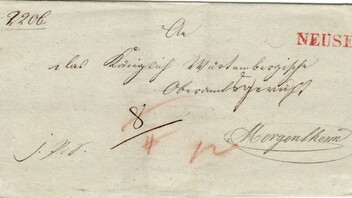 An
NEUSE
das Königlich Würtembergische
Oberamtsgericht
8
4
12
Mergentheim